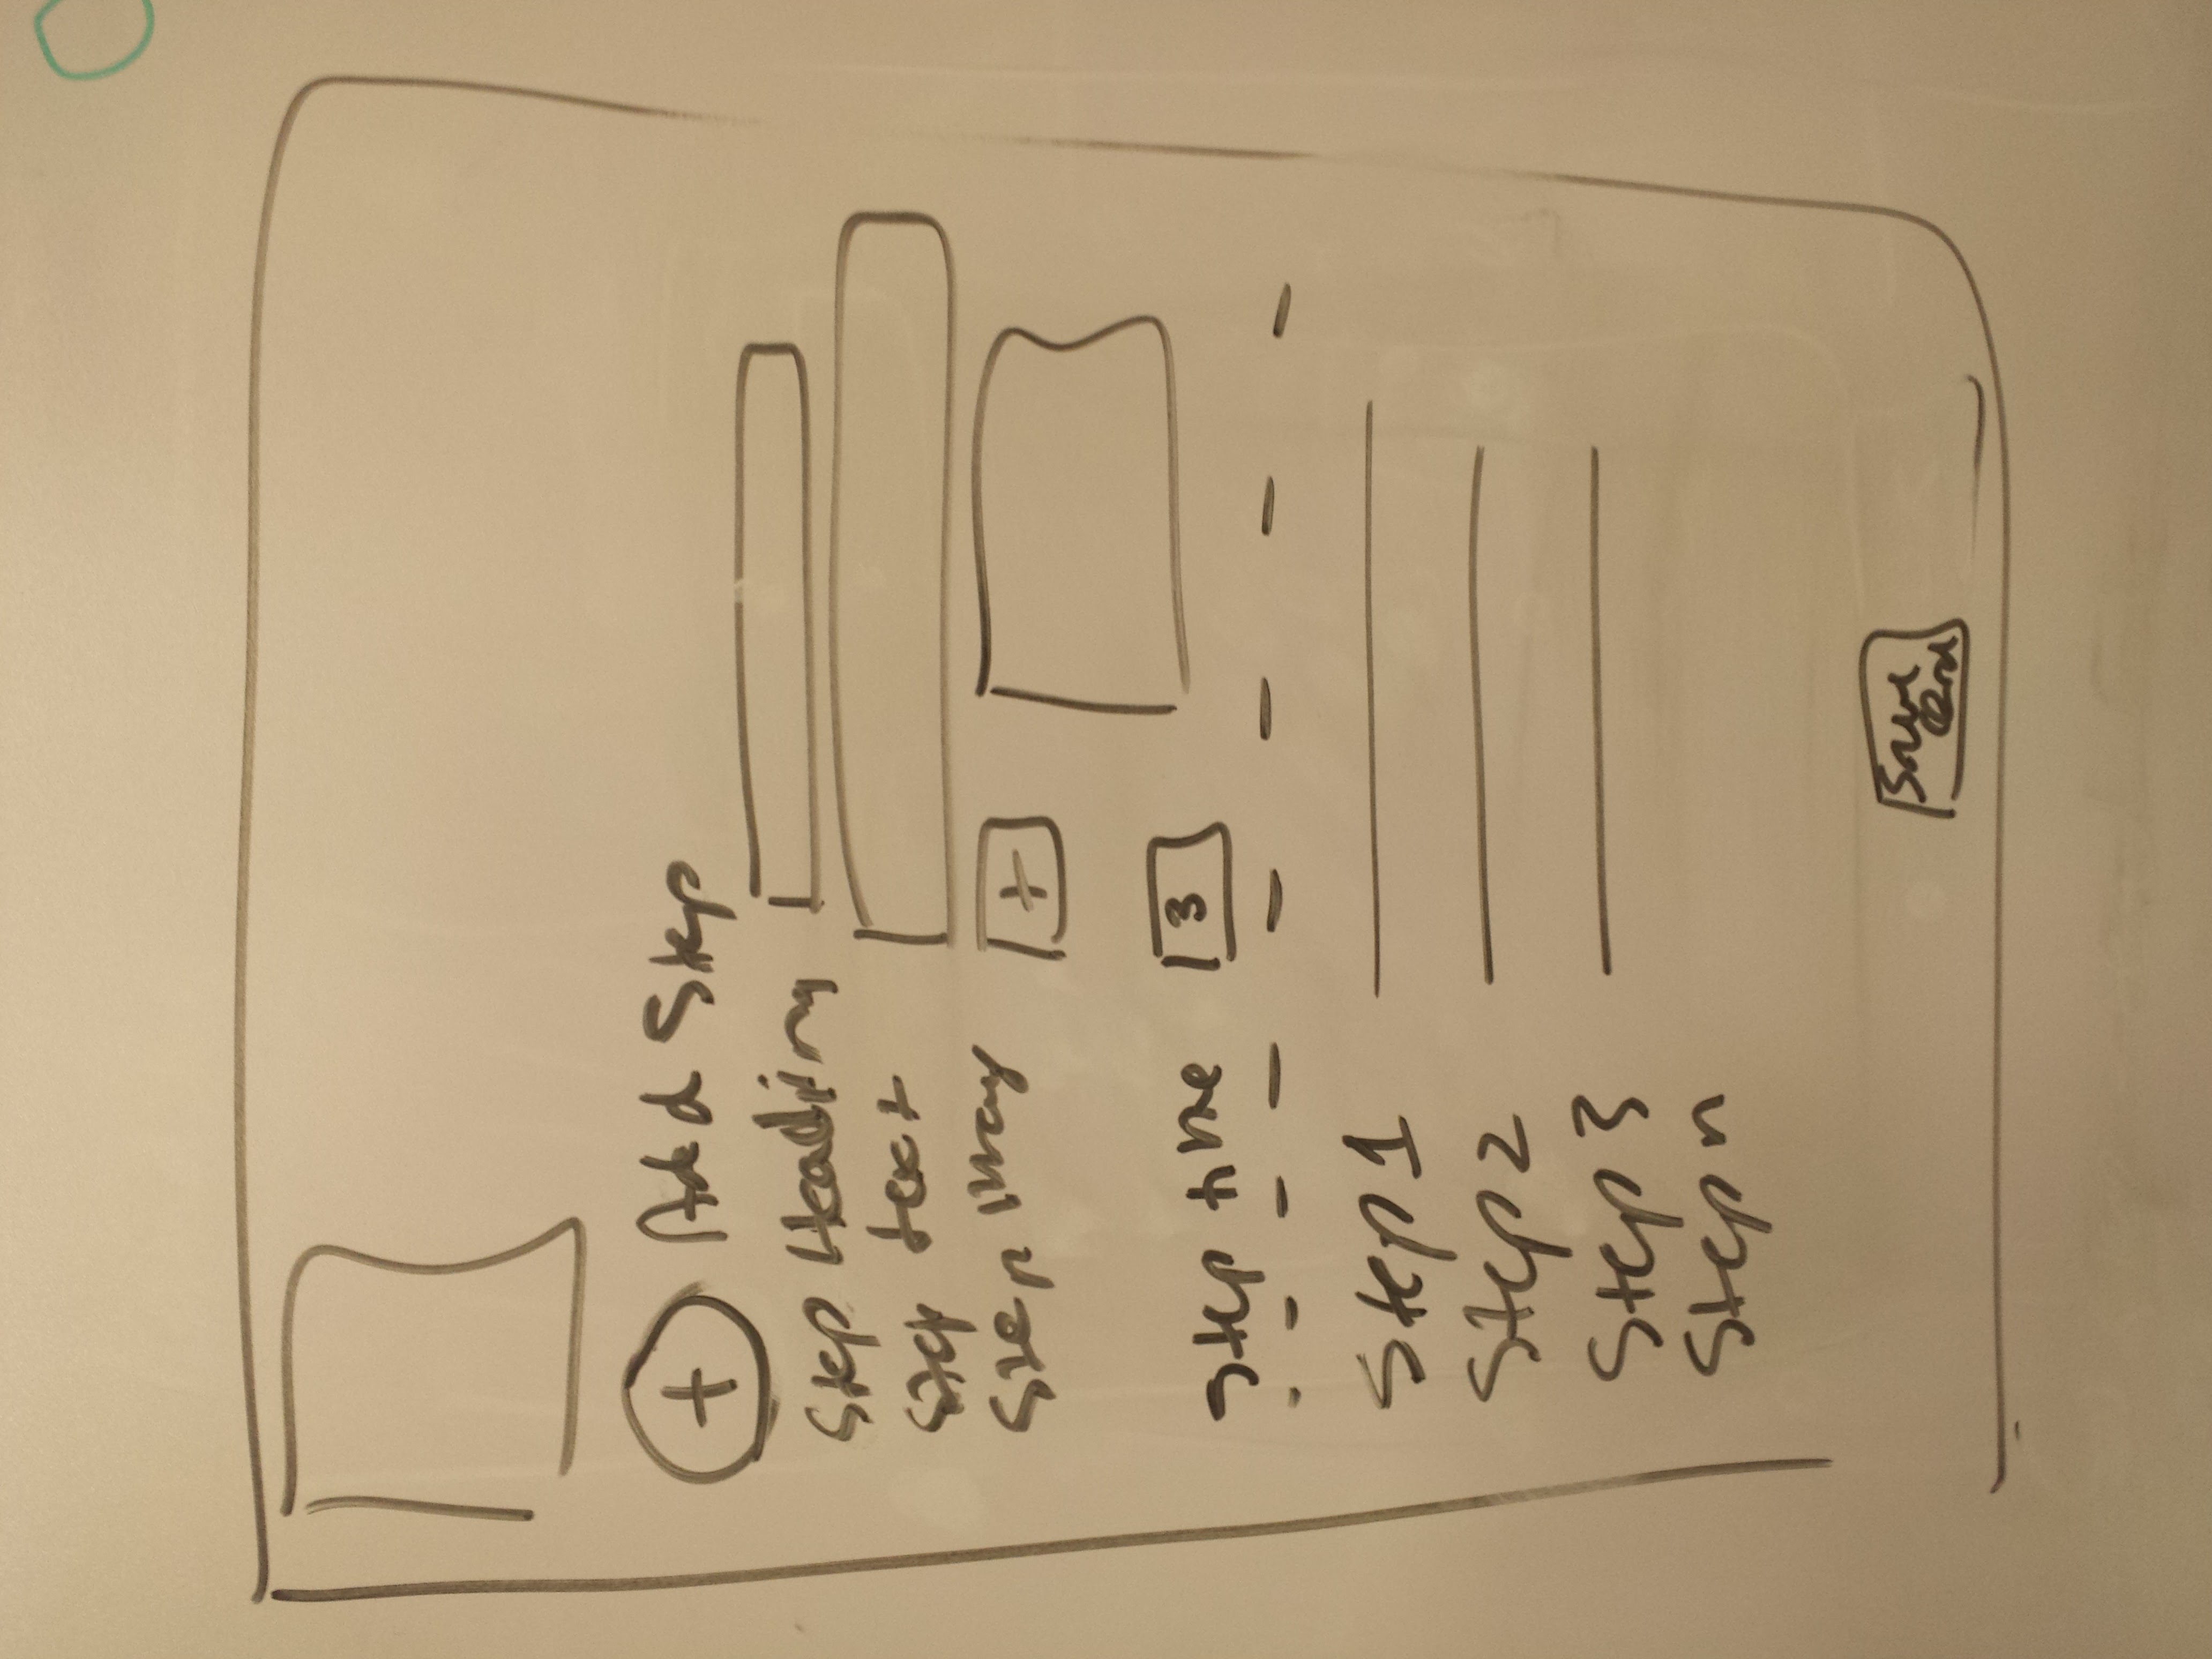 + Add Step
Step Heading
Step text
Step imag
+
Step time 3
Step 1
Step 2
Step 3
Step n
Save
Card